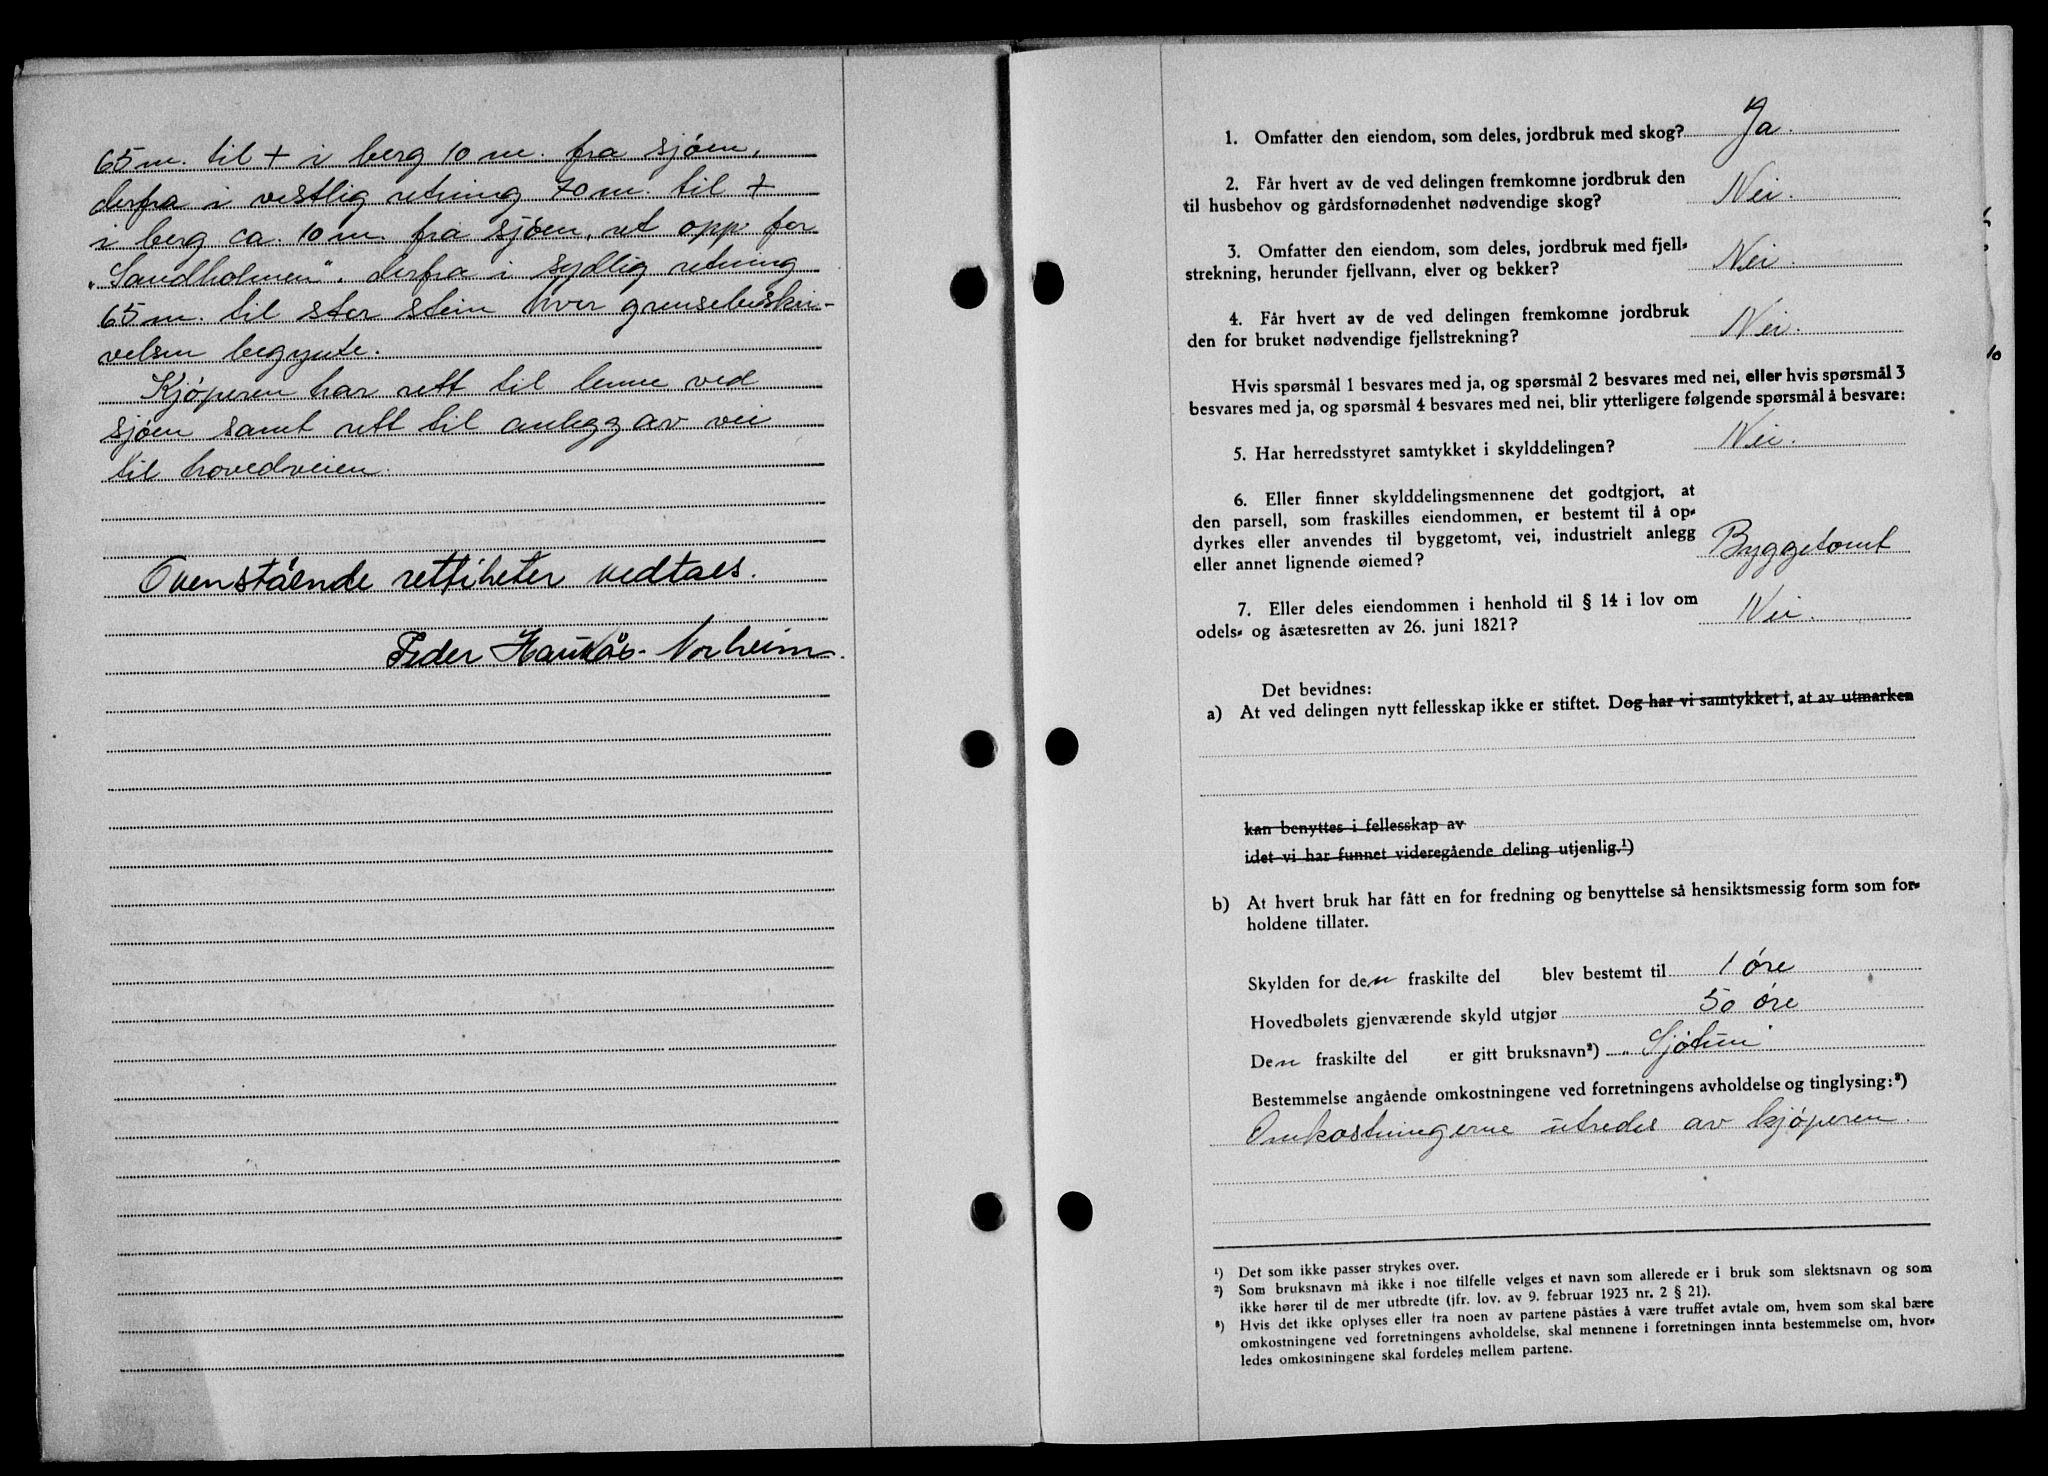 65 m. til + i berg 10 m. fra sjøen,
derfra i vestlig retning 70 m. til +
i berg ca. 10 m. fra sjøen, ret opp for
"Sandholmen". derfra i sydlig retning
65 m. til stor stein hvor grensebeskri-
velsen begynte.
Kjøperen har rett til lenne ved
sjøen samt rett til anlegg av vei
til hovedveien.
Ovenstående rettiheter vedtaes.
Peder Haukås-Norheim.
1. Omfatter den eiendom, som deles, jordbruk med skog? Ja.
2. Får hvert av de ved delingen fremkomne jordbruk den
til husbehov og gårdsfornødenhet nødvendige skog? Nei.
3. Omfatter den eiendom, som deles, jordbruk med fjell-
strekning, herunder fjellvann, elver og bekker? Nei.
4. Får hvert av de ved delingen fremkomne jordbruk
den for bruket nødvendige fjellstrekning? Nei.
Hvis spørsmål 1 besvares med ja, og spørsmål 2 besvares med nei, eller hvis spørsmål 3
besvares med ja, og spørsmål 4 besvares med nei, blir ytterligere følgende spørsmål å besvare:
5. Har herredsstyret samtykket i skylddelingen? Nei.
6. Eller finner skylddelingsmennene det godtgjort, at
den parsell, som fraskilles eiendommen, er bestemt til å op-
dyrkes eller anvendes til byggetomt, vei, industrielt anlegg
eller annet lignende øiemed? Byggetomt
7. Eller deles eiendommen i henhold til § 14 i lov om
odels- og åsætesretten av 26. juni 1821? Nei.
Det bevidnes:
a) At ved delingen nytt fellesskap ikke er stiftet. Dog har vi samtykket i, at av utmarken
kan benyttes i fellesskap av
idet vi har funnet videregående deling utjenlig.¹)
b) At hvert bruk har fått en for fredning og benyttelse så hensiktsmessig form som for-
holdene tillater.
Skylden for den fraskilte del blev bestemt til 1 øre
Hovedbølets gjenværende skyld utgjør 50 øre
Den fraskilte del er gitt bruksnavn²) "Sjøtun
Bestemmelse angående omkostningene ved forretningens avholdelse og tinglysing:³)
Omkostningerne utredes av kjøperen.
¹) Det som ikke passer strykes over.
²) Som bruksnavn må ikke i noe tilfelle velges et navn som allerede er i bruk som slektsnavn og som
ikke hører til de mer utbredte (jfr. lov. av 9. februar 1923 nr. 2 § 21).
³) Hvis det ikke oplyses eller fra noen av partene påståes å være truffet avtale om, hvem som skal bære
omkostningene ved forretningens avholdelse, skal mennene i forretningen innta bestemmelse om, hvor-
ledes omkostningene skal fordeles mellem partene.
10